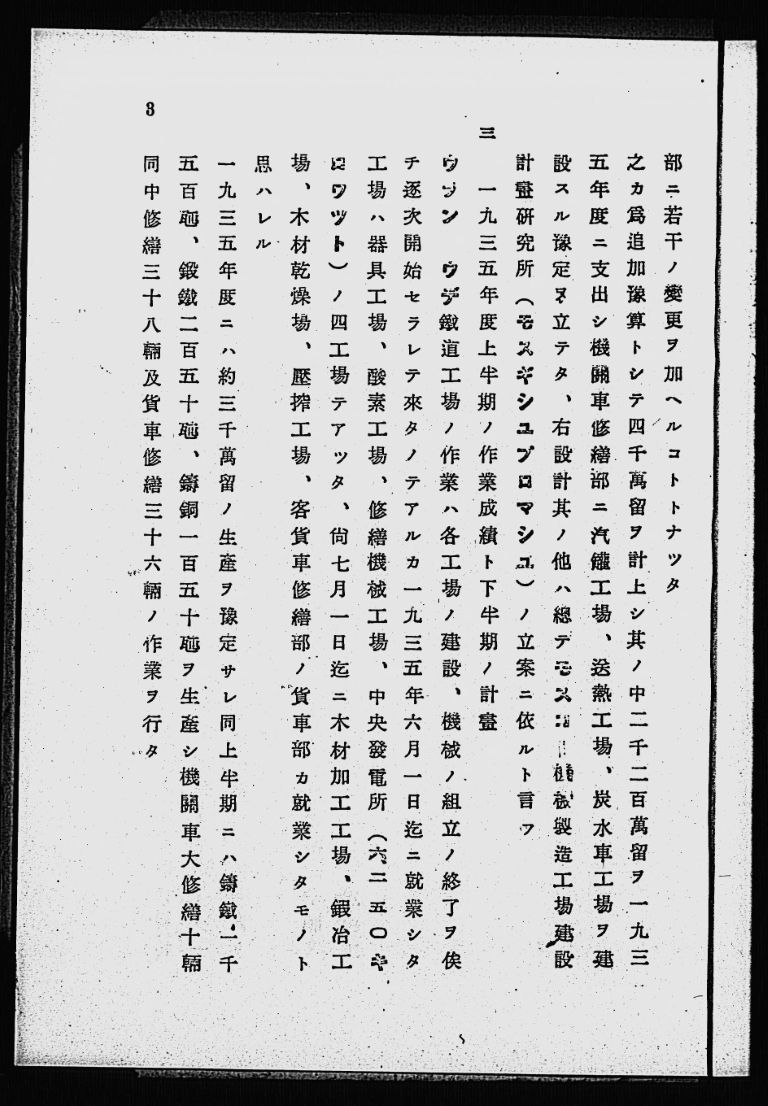 部ニ若干ノ變更ヲ加ヘルコトトナツタ
之カ爲追加豫算トシテ四千萬留ヲ計上シ其ノ中二千二百萬留ヲ一九三
五年度ニ支出シ機關車修繕部ニ汽鑵工場、送熱工場、炭水車工場ヲ建
設スル豫定ヲ立テタ、右設計其ノ他ハ總テモスコー機械製造工場建設
計畫研究所（モスギシユプロマシユ）ノ立案ニ依ルト言フ
三　一九三五年度上半期ノ作業成績ト下半期ノ計畫
ウラン　ウデ鐵道工場ノ作業ハ各工場ノ建設、機械ノ組立ノ終了ヲ俟
チ逐次開始セラレテ來タノテアルカ一九三五年六月一日迄ニ就業シタ
工場ハ器具工場、酸素工場、修繕機械工場、中央發電所（六二五〇キ
ロワツト）ノ四工場テアツタ、尙七月一日迄ニ木材加工工場、鍜冶工
場、木材乾燥場、壓搾工場、客貨車修繕部ノ貨車部カ就業シタモノト
思ハレル
一九三五年度ニハ約三千萬留ノ生產ヲ豫定サレ同上半期ニハ鑄鐵一千
五百瓲、鍛鐵二百五十瓲、鑄鋼一百五十瓲ヲ生產シ機關車大修繕十輛
同中修繕三十八輛及貨車修繕三十六輛ノ作業ヲ行タ
8